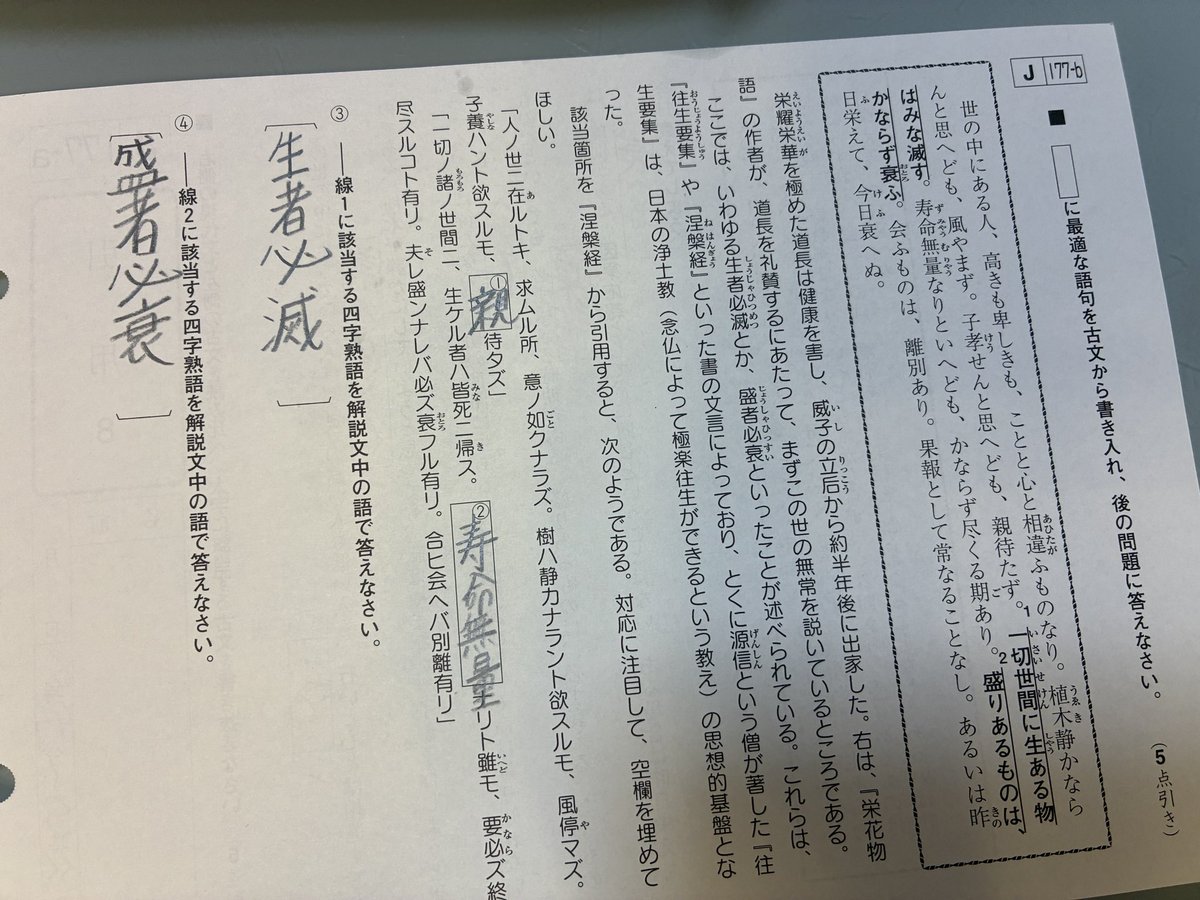 J 177-b
■ に最適な語句を古文から書き入れ、後の問題に答えなさい。
（5点引き）
世の中にある人、高きも卑しきも、ことと心と相違ふものなり。植木静かなら
んと思へども、風やまず。子孝せんと思へども、親待たず。1一切世間に生ある物
はみな滅す。寿命無量なりといへども、かならず尽くる期あり。2盛りあるものは、
かならず衰ふ。会ふものは、離別あり。果報として常なることなし。あるいは昨
日栄えて、今日衰へぬ。
栄耀栄華を極めた道長は健康を害し、威子の立后から約半年後に出家した。右は、『栄花物
語』の作者が、道長を礼賛するにあたって、まずこの世の無常を説いているところである。
ここでは、いわゆる生者必滅とか、盛者必衰といったことが述べられている。これらは、
『往生要集』や『涅槃経』といった書の文言によっており、とくに源信という僧が著した『往
生要集』は、日本の浄土教（念仏によって極楽往生ができるという教え）の思想的基盤とな
った。
該当箇所を『涅槃経』から引用すると、次のようである。対応に注目して、空欄を埋めて
ほしい。
「人ノ世ニ在ルトキ、求ムル所、意ノ如クナラズ。樹ハ静カナラント欲スルモ、風停マズ。
子養ハント欲スルモ、①親待タズ」
「一切ノ諸ノ世間ニ、生ケル者ハ皆死ニ帰ス。②寿命無量リト雖モ、要必ズ終
尽スルコト有リ。夫レ盛ンナレバ必ズ衰フル有リ。合ヒ会ヘバ別離有リ」
③ ――線1に該当する四字熟語を解説文中の語で答えなさい。
〔生者必滅〕
④ ――線2に該当する四字熟語を解説文中の語で答えなさい。
〔盛者必衰〕